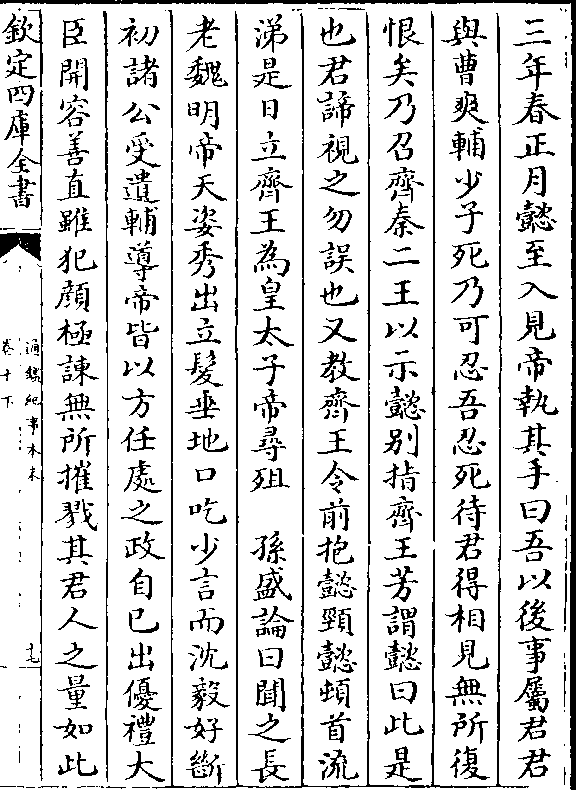 三年春正月懿至入見帝執其手曰吾以後事屬君君
與曹爽輔少子死乃可忍吾忍死待君得相見無所復
恨矣乃召齊秦二王以示懿别指齊王芳謂懿曰此是
也君諦視之勿誤也又教齊王令前抱懿頸懿頓首流
涕是日立齊王為皇太子帝尋殂　孫盛論曰聞之長
老魏明帝天姿秀出立髮垂地口吃少言而沈毅好斷
初諸公受遺輔導帝皆以方任處之政自已出優禮大
臣開容善直雖犯顔極諫無所摧戮其君人之量如此
欽定四庫全書
通鑑紀事本末
卷十下
十七